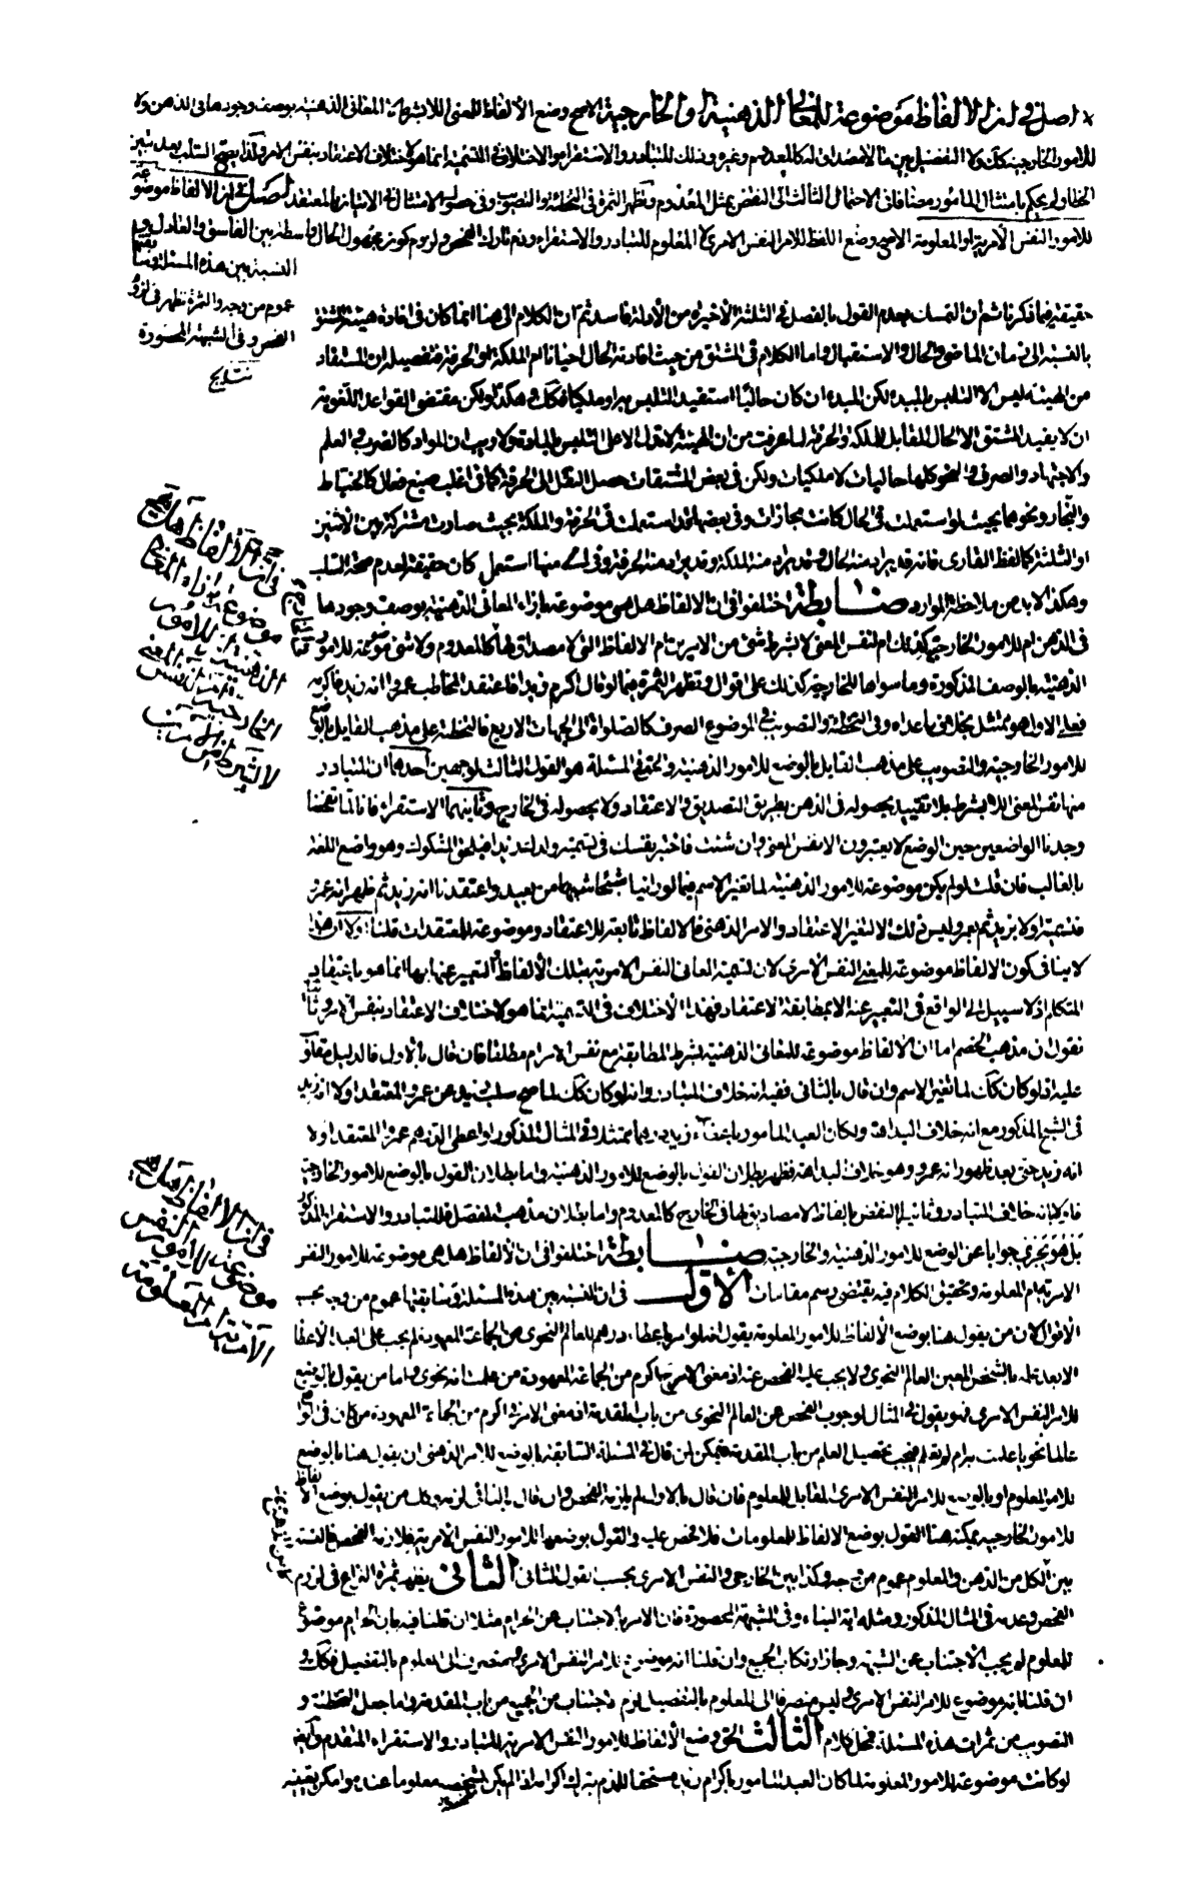 اصل في ان الالفاظ موضوعة للمعاني الذهنية او الخارجية الاصح وضع الألفاظ للمعنى اللابشرط لا المعاني الذهنية بوصف وجودها في الذهن ولا
للامور الخارجية كك ولا التفصيل بين ما لا مصداق له كالمعدوم وغيره وذلك للتبادر والاستقراء والاختلاف في التسمية انما هو لاختلاف الاعتقاد بنفس الامر ولذا يصح السلب بعد تبين
الخطا ولم يحكم بامتثال المامور مضافا في الاحتمال الثالث الى النقض بمثل المعدوم وتظهر الثمرة في التخطئة والتصويب وفي حصول الامتثال في الاتيان بالمعتقد اصل في ان الالفاظ موضوعة
للامور النفس الأمرية او المعلومة الاصح وضع اللفظ للامر النفس الامرى لا المعلوم للتبادر والاستقراء وذم تارك الفحص ولزوم كون مجهول الحال واسطة بين الفاسق والعادل و
النسبة بين هذه المسئلة و
عموم من وجه والثمرة تظهر في لزوم
الفحص وفي الشبهة المحصورة
حقيقة فيما ذكرنا ثم ان التمسك بعدم القول بالفصل في الثلثة الأخيرة من الأدلة فاسد ثم ان الكلام الى هنا انما كان في افادة هيئة المشتق
بالنسبة الى زمان الماضي والحال والاستقبال واما الكلام في المشتق من حيث افادته الحال احيانا ام الملكة او الحرفة فتفصيله ان المستفاد
من الهيئة ليس الا التلبس بالمبدء لكن المبدء ان كان حاليا استفيد التلبس به او ملكيا فكك وهكذا ولكن مقتضى القواعد اللغوية
ان لا يفيد المشتق الا الحال المقابل للملكة والحرفة لما عرفت من ان الهيئة لا تدل الا على التلبس بالمادة ولا ريب ان المواد كالضرب والعلم
والاجتهاد والصرف والنحو كلها حاليات لا ملكيات ولكن في بعض المشتقات حصل النقل الى الحرفة كما في اغلب صيغ فعال كالخياط
والنجار ونحوهما بحيث لو استعملت في الحال كانت مجازات وفي بعضها قد استعملت في الحرفة والملكة بحيث صارت مشتركة بين الاثنين
او الثلثة كلفظ القارى فانه قد يراد منه الحال وقد يراد منه الملكة وقد يراد منه الحرفة وفي اي منها استعمل كان حقيقة لعدم صحة السلب
وهكذا لا بد من ملاحظة الموارد ضابطة اختلفوا في ان الالفاظ هل هي موضوعة بازاء المعاني الذهنية بوصف وجودها
في الذهن ام للامور الخارجية كذلك ام لنفس المعنى لا بشرط شئ من الامرين ام الالفاظ التي لا مصداق لها كالمعدوم ولا شئ موضوعة للامور
الذهنية بالوصف المذكور وما سواها للخارجية كذلك على اقوال وتظهر الثمرة فيما لو قال اكرم زيدا فاعتقد المخاطب عمروا انه زيد فاكرمه
فعلى الاول هو ممتثل بخلاف ما عداه وفي التخطئة والتصويب في الموضوع الصرف كالصلوة الى الجهات الاربع فالتخطئة على مذهب القايل بالوضع
للامور الخارجية والتصويب على مذهب القايل بالوضع للامور الذهنية والحق في المسئلة هو القول الثالث لوجهين احدهما ان المتبادر
منها نفس المعنى اللابشرط بلا تقييد بحصوله في الذهن بطريق التصديق والاعتقاد ولا بحصوله في الخارج وثانيهما الاستقراء فانا لما تفحصنا
وجدنا الواضعين حين الوضع لا يعتبرون الا نفس المعنى وان شئت فاختبر نفسك في تسمية ولدك زيدا فيلحق المشكوك وهو واضع اللغة
بالغالب فان قلت لو لم يكن موضوعة للامور الذهنية لما تغير الاسم فيما لو راينا شبحا من بعيد واعتقدنا انه زيد ثم ظهر انه عمرو
فنسميه اولا بزيد ثم بعمرو وليس ذلك الا لتغير الاعتقاد والامر الذهني فالالفاظ تابعة للاعتقاد وموضوعة للمعتقدات قلنا اولا ان هذا
لا ينافي كون الالفاظ موضوعة للمعنى النفس الأمري لان تسمية المعاني النفس الامرية بتلك الألفاظ والتعبير عنها بها انما هو باعتقاد
المتكلم اذ لا سبيل الى الواقع في التعبير عنه الا بمطابقة الاعتقاد فهذا الاختلاف في التسمية انما هو لاختلاف الاعتقاد بنفس الامر وثانيا
نقول ان مذهب الخصم اما ان الألفاظ موضوعة للمعاني الذهنية بشرط المطابقة مع نفس الامر ام مطلقا فان قال بالاول فالدليل
عليه اذ لو كان كك لما تغير الاسم وان قال بالثاني ففيه انه خلاف المتبادر وانه لو كان كك لما صح سلب زيد عن عمرو المعتقد اولا انه زيد
في الشبح المذكور مع انه خلاف البداهة ولكان العبد المامور باعطاء زيد درهما ممتثلا في المثال المذكور لو اعطى الدرهم عمروا المعتقد اولا
انه زيد حتى بعد ظهور انه عمرو وهو خلاف البداهة فظهر بطلان القول بالوضع للامور الذهنية واما بطلان القول بالوضع للامور الخارجية
فاولا لانه خلاف المتبادر وثانيا بالنقض بالفاظ لا مصاديق لها في الخارج كالمعدوم واما بطلان مذهب المفصل فللتبادر والاستقراء المذكور
بل هو تجزي جوابا عن الوضع للامور الذهنية والخارجية ضابطة اختلفوا في ان الألفاظ هل هي موضوعة للامور النفس
الامرية ام المعلومة وتحقيق الكلام فيه يقتضي رسم مقامات الاول في ان النسبة بين هذه المسئلة وسابقتها عموم من وجه بحسب
الأقوال لان من يقول هنا بوضع الألفاظ للامور المعلومة يقول فلو امر باعطاء درهم للعالم النحوى من الجماعة المعهودة لم يجب على العبد الاعطاء
الا بعد علمه بالشخص المعين العالم النحوي ولا يجب عليه الفحص عنه اذ معنى الامر ح اكرم من الجماعة المعهودة من علمت انه نحوى واما من يقول بالوضع
للامر النفس الامري فهو يقول في المثال بوجوب الفحص عن العالم النحوى من باب المقدمة اذ معنى الامر ح اكرم من الجماعة المعهودة من كان في الواقع
عالما نحويا علمت به ام لم تعلم فيجب تحصيل العلم من باب المقدمة فيمكن لمن قال في المسئلة السابقة بالوضع للامر الذهني ان يقول هنا بالوضع
للامر المعلوم او بالوضع للامر النفس الامرى المقابل للمعلوم فان قال بالاول لم يلزمه الفحص وان قال بالثاني لزمه وكل من يقول بوضع الالفاظ
للامور الخارجية يمكنه هنا القول بوضع الالفاظ للمعلومات فلا فحص عليه والقول بوضعها للامور النفس الأمرية فيلازمه الفحص فالنسبة
بين الكل من الذهن والمعلوم عموم من وجه وكذا بين الخارجي والنفس الامرى بحسب القول الثاني يظهر ثمرة النزاع في لزوم
الفحص وعدمه في المثال المذكور ومثله اية النبا وفي الشبهة المحصورة فان الامر بالاجتناب عن الحرام مثلا ان قلنا فيه بان الحرام موضوع
للمعلوم لم يجب الاجتناب عن الشبهة وجاز ارتكاب الجميع وان قلنا انه موضوع للامر النفس الامرى ومنصرف الى المعلوم بالتفصيل فكك و
ان قلنا بانه موضوع للامر النفس الامرى وليس منصرفا الى المعلوم بالتفصيل لزم الاجتناب من الجميع من باب المقدمة واما جعل التخطئة و
التصويب من ثمرات هذه المسئلة فمحل كلام الثالث الحق وضع الألفاظ للامور النفس الامرية للتبادر والاستقراء المتقدم ولانه
لو كانت موضوعة للامور المعلومة لما كان العبد المامور باكرام زيد مستحقا للذم بترك اكرامه اذا لم يكن بشخصه معلوما عنده وامكن تعيينه
في ان الألفاظ هل هي
موضوعة بازاء المعاني
الذهنية او للامور
الخارجية او لنفس المعنى
لا بشرط من الامرين
في ان الالفاظ هل هي
موضوعة للامور النفس
الأمرية او المعلومة